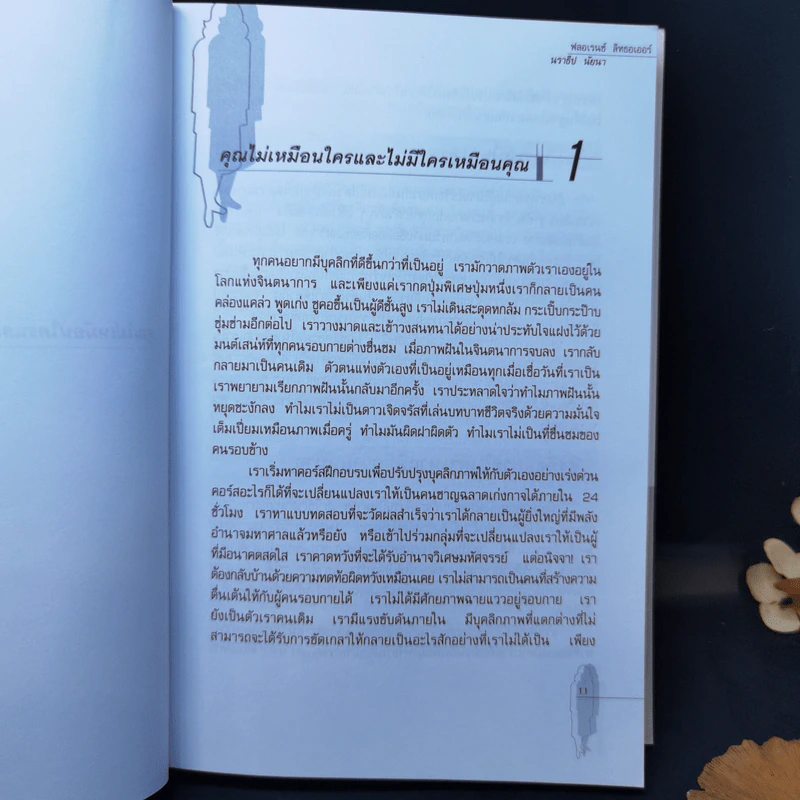 ฟลอเรนซ์ ลิทธอเออร์
นราธิป นัยนา
คุณไม่เหมือนใครและไม่มีใครเหมือนคุณ 1
ทุกคนอยากมีบุคลิกที่ดีขึ้นกว่าที่เป็นอยู่ เรามักวาดภาพตัวเราเองอยู่ใน
โลกแห่งจินตนาการ และเพียงแค่เรากดปุ่มพิเศษปุ่มหนึ่งเราก็กลายเป็นคน
คล่องแคล่ว พูดเก่ง ชูคอขึ้นเป็นผู้ดีชั้นสูง เราไม่เดินสะดุดหกล้ม กระเปิ๊บกระป๊าบ
ซุ่มซ่ามอีกต่อไป เราวางมาดและเข้าวงสนทนาได้อย่างน่าประทับใจแฝงไว้ด้วย
มนต์เสน่ห์ที่ทุกคนรอบกายต่างชื่นชม เมื่อภาพฝันในจินตนาการจบลง เรากลับ
กลายมาเป็นคนเดิม ตัวตนแห่งตัวเองที่เป็นอยู่เหมือนทุกเมื่อเชื่อวันที่เราเป็น
เราพยายามเรียกภาพฝันนั้นกลับมาอีกครั้ง เราประหลาดใจว่าทำไมภาพฝันนั้น
หยุดชะงักลง ทำไมเราไม่เป็นดาวเจิดจรัสที่เล่นบทบาทชีวิตจริงด้วยความมั่นใจ
เต็มเปี่ยมเหมือนภาพเมื่อครู่ ทำไมมันผิดฝาผิดตัว ทำไมเราไม่เป็นที่ชื่นชมของ
คนรอบข้าง
เราเริ่มหาคอร์สฝึกอบรมเพื่อปรับปรุงบุคลิกภาพให้กับตัวเองอย่างเร่งด่วน
คอร์สอะไรก็ได้ที่จะเปลี่ยนแปลงเราให้เป็นคนชาญฉลาดเก่งกาจได้ภายใน 24
ชั่วโมง เราหาแบบทดสอบที่จะวัดผลสำเร็จว่าเราได้กลายเป็นผู้ยิ่งใหญ่ที่มีพลัง
อำนาจมหาศาลแล้วหรือยัง หรือเข้าไปร่วมกลุ่มที่จะเปลี่ยนแปลงเราให้เป็นผู้
ที่มีอนาคตสดใส เราคาดหวังที่จะได้รับอำนาจวิเศษมหัศจรรย์ แต่อนิจจา! เรา
ต้องกลับบ้านด้วยความท้อผิดหวังเหมือนเคย เราไม่สามารถเป็นคนที่สร้างความ
ตื่นเต้นให้กับผู้คนรอบกายได้ เราไม่ได้มีศักยภาพฉายแววอยู่รอบกาย เรา
ยังเป็นตัวเราคนเดิม เรามีแรงขับดันภายใน มีบุคลิกภาพที่แตกต่างที่ไม่
สามารถจะได้รับการขัดเกลาให้กลายเป็นอะไรสักอย่างที่เราไม่ได้เป็น เพียง
11